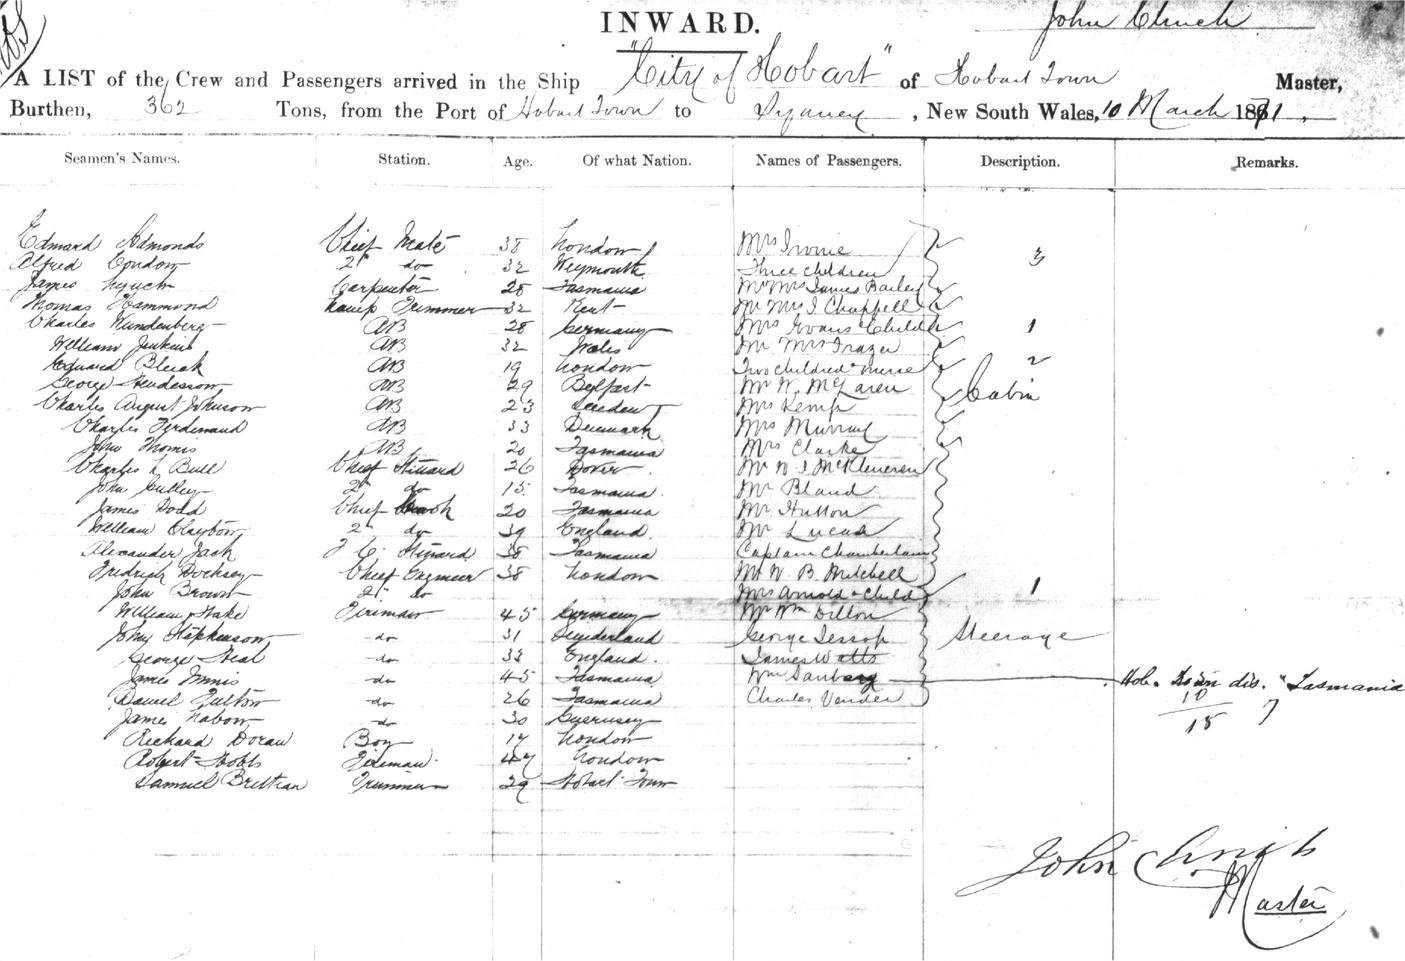 INWARD.
John Clinch
A LIST of the Crew and Passengers arrived in the Ship "City of Hobart" of Hobart Town Master,
Burthen, 362 Tons, from the Port of Hobart Town to Sydney, New South Wales, 10 March 1871.
Seamen's Names. Station. Age. Of what Nation. Names of Passengers. Description. Remarks.
Edward Admonds Chief Mate 38 London Mrs Irvine
Alfred Condon 2d do 32 Weymouth Three Children 3
James Lynch Carpenter 28 Tasmania Mr Mrs James Bailey
Thomas Hammond Lamp Trimmer 32 Kent Mr Mrs J. Chappell
Charles Wundenberg AB 28 Germany Mrs Evans & Child 1
William Jenkins AB 32 Wales Mr Mrs Frazer
Edward Black AB 19 London Two Children & Nurse 2
George Henderson AB 29 Belfast Mr W. McLaren Cabin
Charles August Johnson AB 23 Sweden Mrs Kemp
Charles Ferdenand AB 33 Denmark Mrs Murray
John Thomas AB 20 Tasmania Mrs Clarke
Charles L Bull Chief Steward 26 Dover. Mr W J
John 2 do 15 Tasmania. Mr Bland
James Dodd Chief Cook 20 Tasmania Mr Hutton
William Clayton 2 do 39 England. Mr Lucas
Alexander Jack Steward 38 Tasmania Captain Chamberlain
Fredrick Docksey Chief Engineer 38 London Mr W. B. Mitchell
John Brown 2d do Mrs Arnold & Child 1
William Hake Fireman 45 Germany Mr Wm Dillon
John Stephenson do 31 Sunderland George Jessop Steerage
George Neal do 33 England. James Watts
James Innis do 45 Tasmania Wm Hob. Town dis. "Tasmania
Daniel Fulton do 26 Tasmania Charles Vender 10 7
James Labon do 30 Guernsey 18
Richard Doran Boy 17 London
Robert Hobbs Fireman 47 London
Samuel Brettan Trimmer 29 Hobart Town
John Clinch
Master